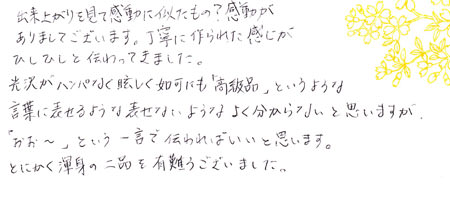 出来上がりを見て感動に似たもの?感動が
ありましてございます。丁寧に作られた感じが
ひしひしと伝わってきました。
光沢がハンパなく眩しく如何にも「高級品」というような
言葉に表せるような表せないようなよく分からないと思いますが、
「おお〜」という一言で伝わればいいと思います。
とにかく渾身の二品を有難うございました。